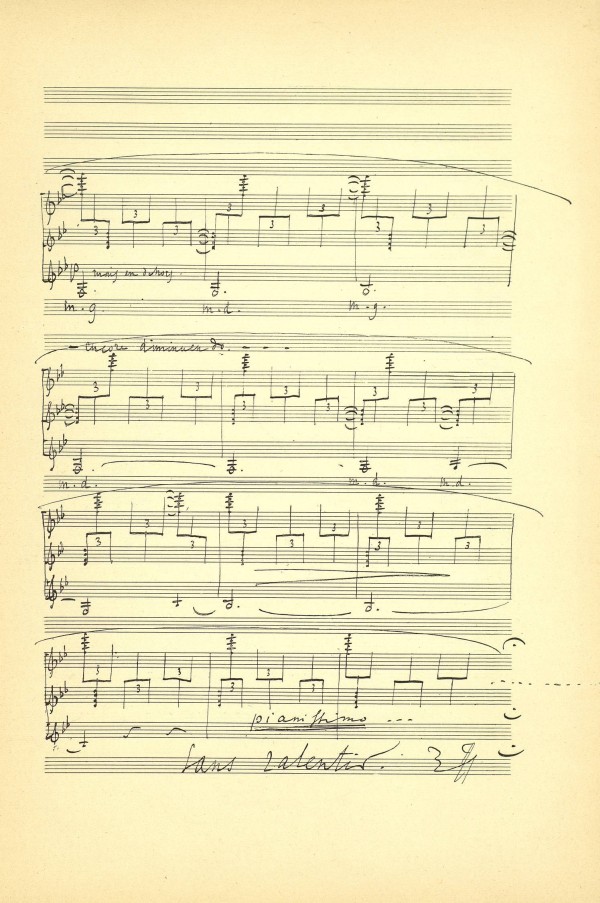 3 3
3 3 3 3
p mais en dehors.
m.g. m.d. m.g.
- encore diminuendo. - - -
3 3
3 3 3
m.d. m.d. m.d.
3 3 3
3 3 3 3
3 3
3 3 3
pianissimo ---
Sans ralentir.